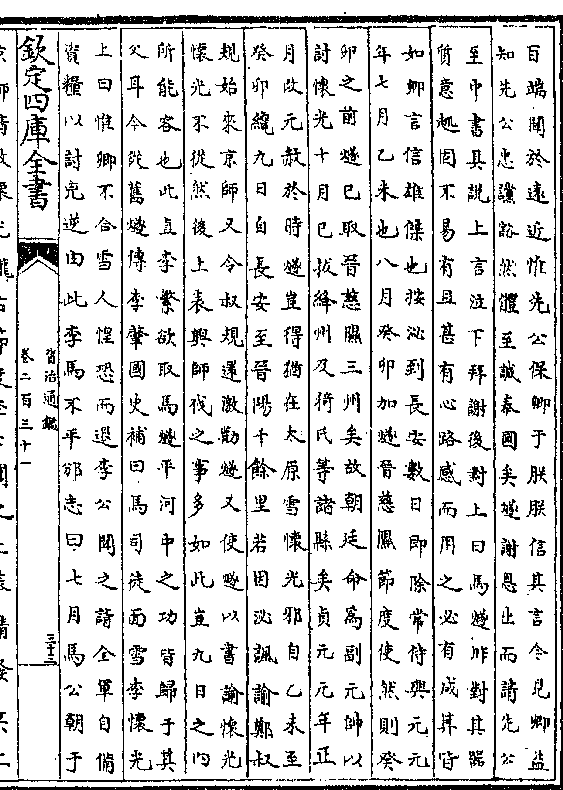 百端聞於遠近惟先公保卿于朕朕信其言今見卿益
知先公忠讜豁然體至誠奉國矣燧謝恩出而請先公
至中書具說上言泣下拜謝後對上曰馬燧昨對其器
質意趣固不易有且甚有心路感而用之必有成算皆
如卿言信雄傑也按泌到長安數日即除常侍興元元
年七月乙未也八月癸卯加燧晉慈隰節度使然則癸
卯之前燧已取晉慈隰三州矣故朝廷命為副元帥以
討懷光十月已拔絳州及猗氏等諸縣矣貞元元年正
月改元赦於時燧豈得猶在太原雪懷光邪自乙未至
癸卯纔九日自長安至晉陽千餘里若因泌諷諭鄭叔
規始來京師又令叔規還激勸燧又使燧以書諭懷光
懷光不從然後上表興師伐之事多如此豈九日之内
所能容也此直李繁欲取馬燧平河中之功皆歸于其
父耳今從舊燧傳李肇國史補曰馬司徒面雪李懷光
上曰惟卿不合雪人惶恐而退李公聞之請全軍自備
資糧以討兇逆由此李馬不平邠志曰七月馬公朝于
欽定四庫全書
資治通鑑
卷二百三十一
三十三
京師請赦懷光